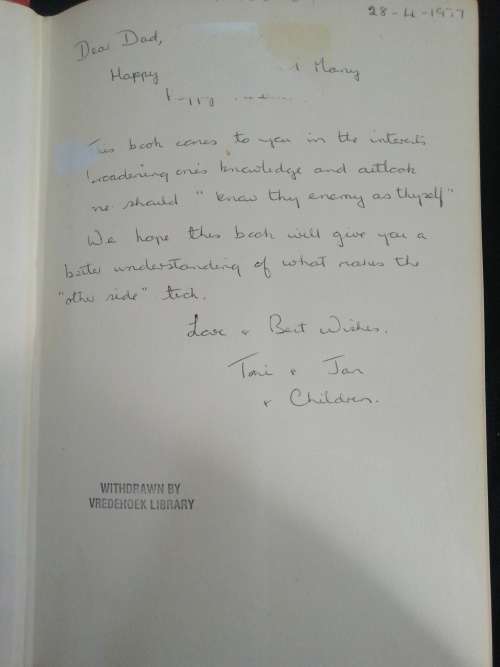 28-4-1977
Dear Dad,
Happy Many
This book comes to you in the interests
broadening one's knowledge and outlook
one should "know thy enemy as thyself"
We hope this book will give you a
better understanding of what makes the
"other side" tick.
Love & Best Wishes.
Toni & Jan
& Children.
WITHDRAWN BY
VREDEHOEK LIBRARY